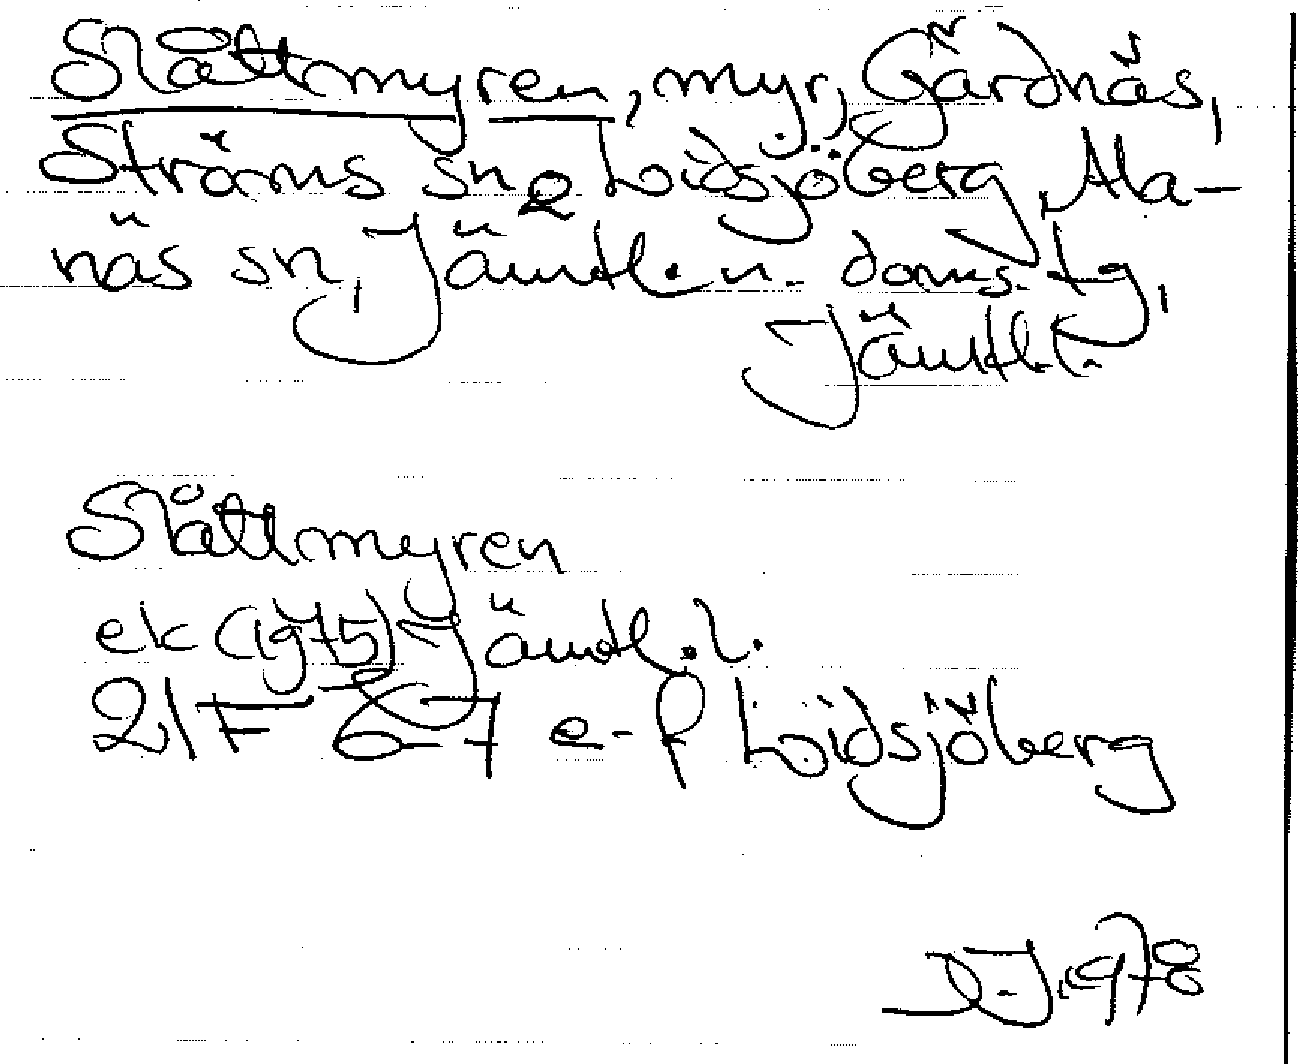 Slåttmyren, myr, Gärdnäs,
Ströms sn o Löidsjöberg, Ala-
näs sn, Jämtl. n. doms. tg,
Jämtl. l.
Slåttmyren
ek (1975) Jämtl. l.
21F 6-7 e-f Löidsjöberg
1978